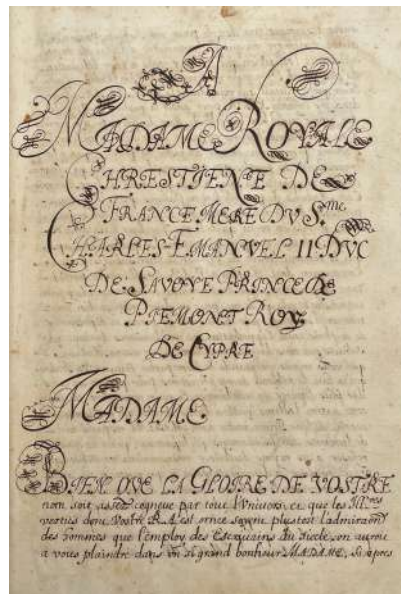 A
MADAME ROYALE
CHRESTIENE DE
FRANCE MERE DV S.me
CHARLES EMANVEL II DVC
DE SAVOYE PRINCE DE
PIEMONT ROY
DE CYPRE
MADAME
BIEN QVE LA GLOIRE DE VOSTRE
nom soit assez cogneue par tout l'Vniuers, et que les
vertus dont Vostre R.A. est ornee soyent plustost
des hommes que l'employ des Escriuains du siecle, on auroit
a vous plaindre dans vn si grand bonheur MADAME, si apres